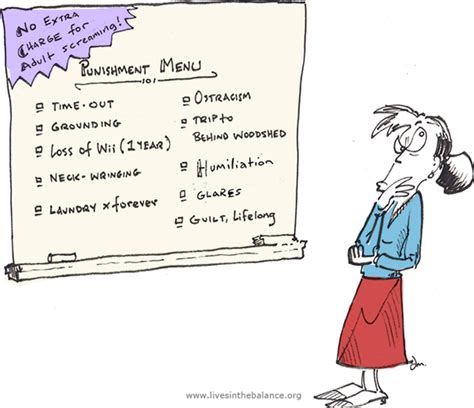 No Extra
Charge for
Adult screaming!
Punishment Menu
101
Time-out
Grounding
Loss of Wii (1 year)
Neck-wringing
Laundry x forever
Ostracism
Trip to
Behind Woodshed
Humiliation
Glares
Guilt, Lifelong
www.livesinthebalance.org